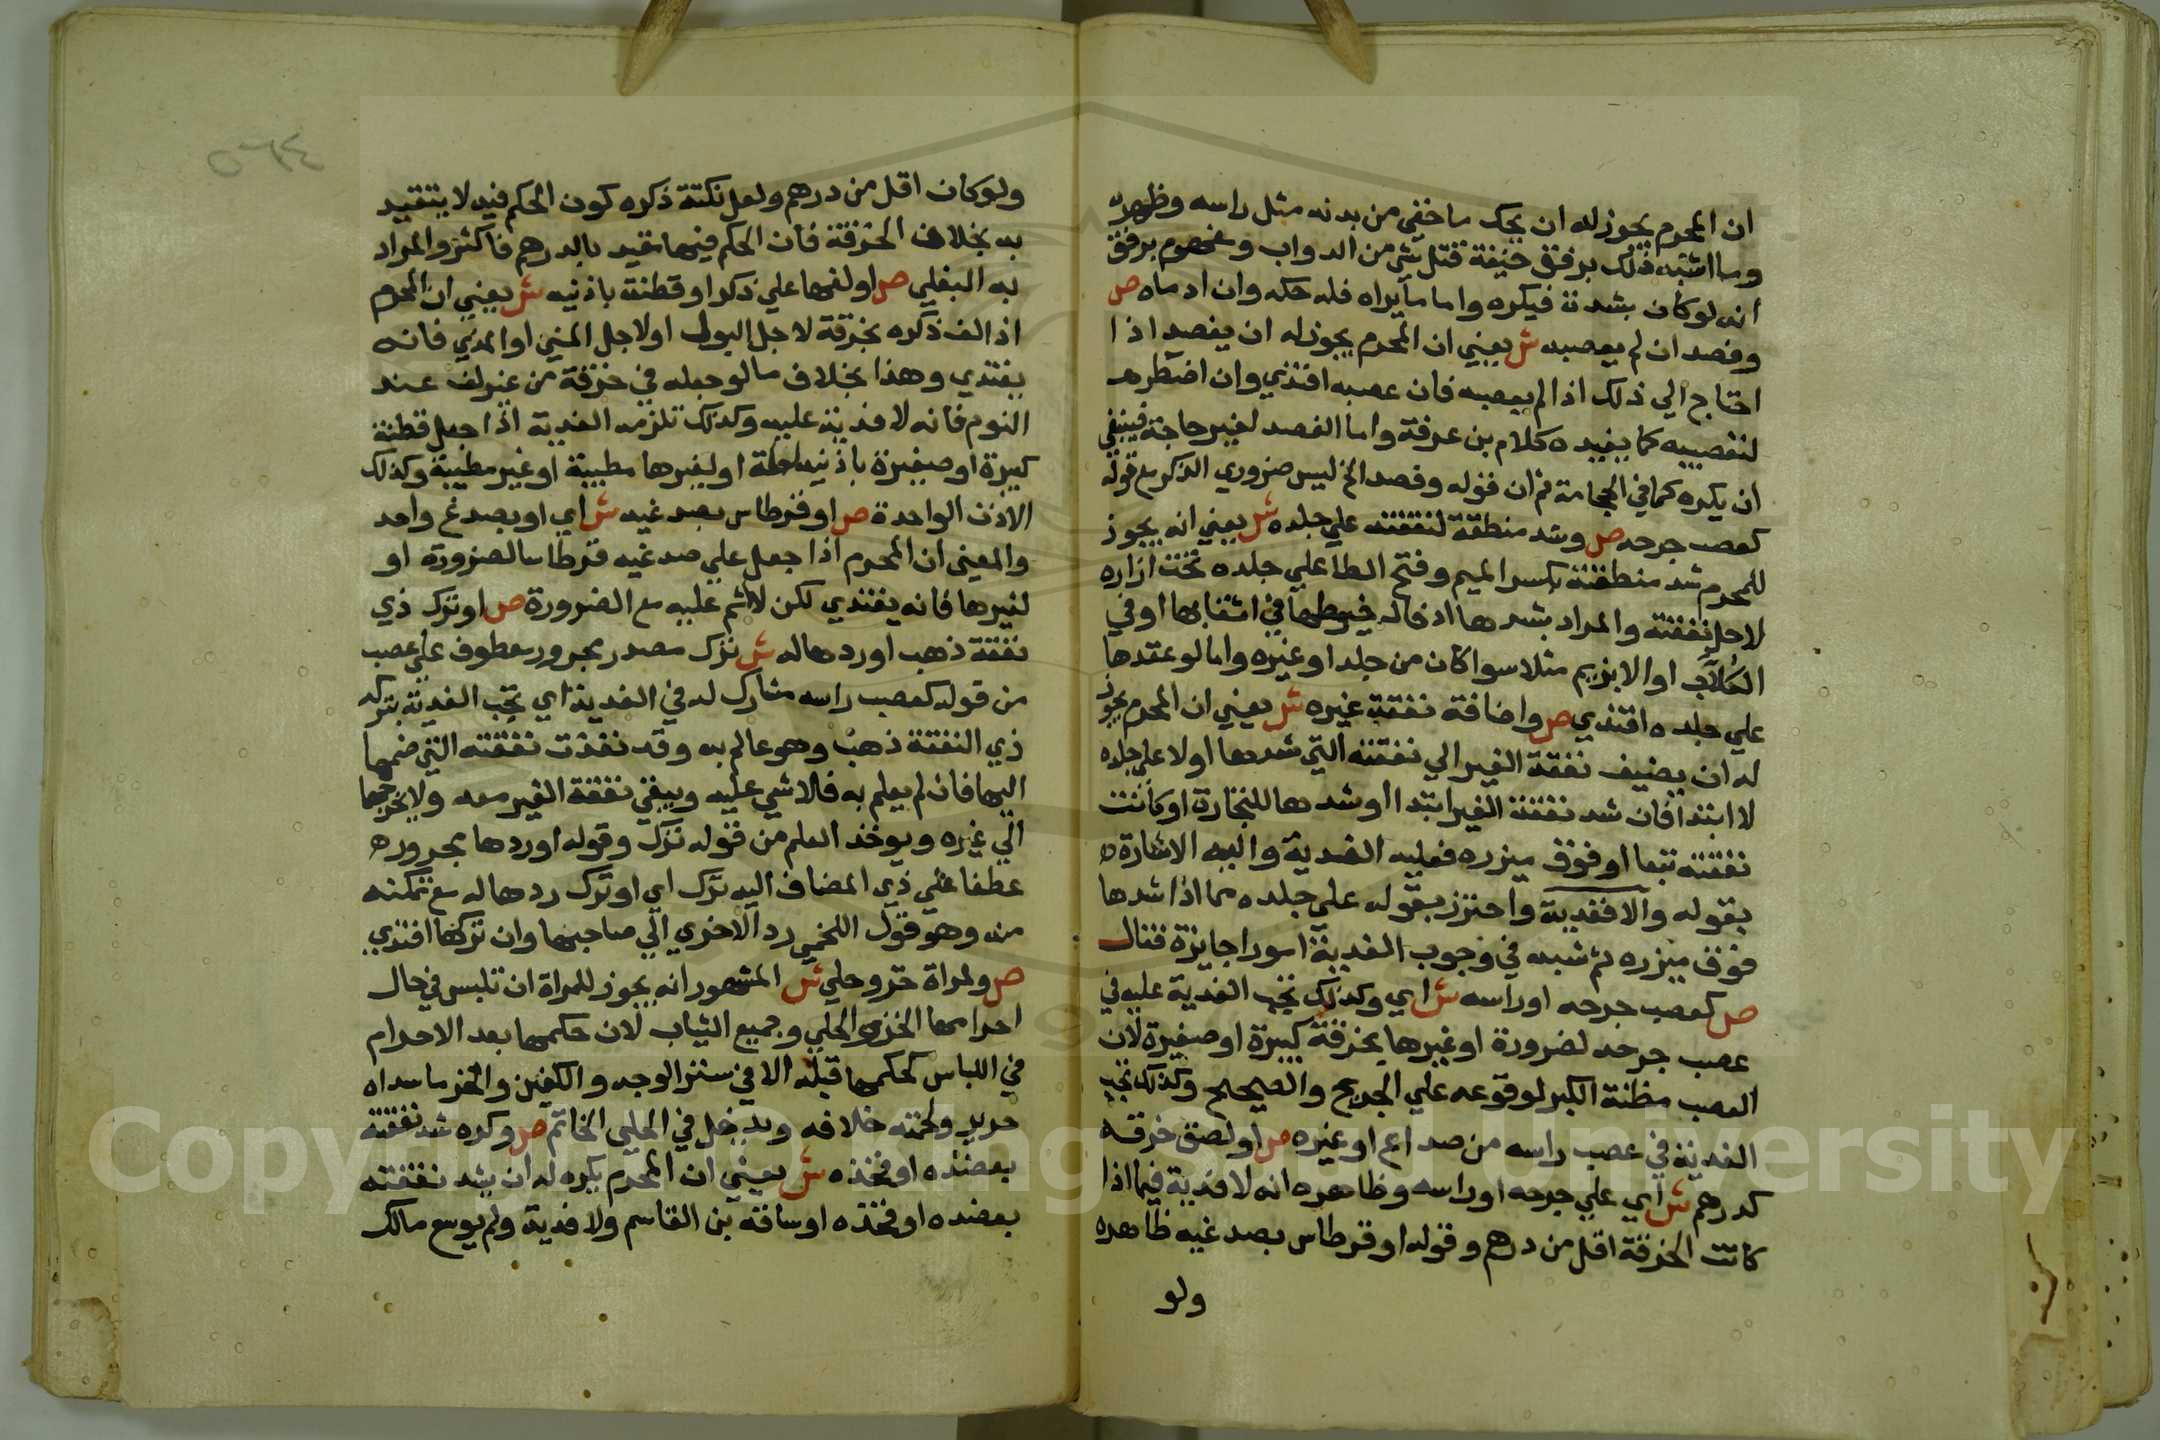 ان المحرم يجوز له ان يحك ما خفي من بدنه مثل راسه وظهره
وما اشبه ذلك برفق خيفة قتل شي من الدواب ومفهوم برفق
انه لو كان بشدة فيكره واما ما يراه فله حكه وان ادماه ص
وفصد ان لم يعصبه ش يعني ان المحرم يجوز له ان يفصد اذا
احتاج الي ذلك اذا لم يعصبه فان عصبه افتدي وان اضطر
لتعصيبه كما يفيده كلام بن عرفة واما الفصد لغير حاجة فينبغي
ان يكره كما في الحجامة ثم ان قوله وفصد الخ ليس ضروري الذكر مع قوله
كعصب جرحه ص وشد منطقة لنفقته علي جلده ش يعني انه يجوز
للمحرم شد منطقته بكسر الميم وفتح الطا علي جلده تحت ازاره
لاجل نفقته والمراد بشدها ادخال خيوطها في اثقابها او في
الكلاب او الابزيم مثلا سوا كان من جلد او غيره واما لو عقدها
علي جلده افتدي ص واضافة نفقة غيره ش يعني ان المحرم يجوز
له ان يضيف نفقة الغير الي نفقته التي شدها اولا علي جلده
لا ابتدا فان شد نفقة الغير ابتدا او شدها للتجارة او كانت
نفقته تبعا او فوق ميزره فعليه الفدية واليه الاشارة
بقوله والا ففدية واحترز بقوله علي جلده مما اذا شدها
فوق ميزره ثم شبه في وجوب الفدية امورا جايزة فقال
ص كعصب جرحه او راسه ش اي وكذلك تجب الفدية عليه في
عصب جرحه لضرورة او غيرها بخرقة كبيرة او صغيرة لان
العصب مظنة الكبر لوقوعه علي الجريح والصحيح وكذلك تجب
الفدية في عصب راسه من صداع او غيره ص او لصق خرقة
كدرهم ش اي علي جرحه او راسه وظاهره انه لا فدية فيما اذا
كانت الخرقة اقل من درهم وقوله او قرطاس بصدغيه ظاهره
ولو
ولو كان اقل من درهم ولعل نكتة ذكره كون الحكم فيه لا يتقيد
به بخلاف الخرقة فان الحكم فيها مقيد بالدرهم فاكثر والمراد
به البغلي ص او لفها علي ذكر او قطنة باذنيه ش يعني ان المحرم
اذا لف ذكره بخرقة لاجل البول او لاجل المني او المذي فانه
يفتدي وهذا بخلاف ما لو جعله في خرقة من غير لف عند
النوم فانه لا فدية عليه وكذلك تلزمه الفدية اذا جعل قطنة
كبيرة او صغيرة باذنيه لعلة او لغيرها مطيبة او غير مطيبة وكذلك
الاذن الواحدة ص او قرطاس بصدغيه ش اي او بصدغ واحد
والمعني ان المحرم اذا جعل علي صدغيه قرطاسا لضرورة او
لغيرها فانه يفتدي لكن لا اثم عليه مع الضرورة ص او ترك ذي
نفقة ذهب او ردها له ش ترك مصدر مجرور معطوف علي عصب
من قوله كعصب راسه مشارك له في الفدية اي تجب الفدية بتركه
ذي النفقة ذهب وهو عالم به وقد نفذت نفقته التي ضمها
اليها فان لم يعلم به فلا شي عليه ويبقي نفقة الغير معه ولا يخرجها
الي غيره ويوخذ العلم من قوله ترك وقوله او ردها بجروره
عطفا علي ذي المضاف اليه ترك اي او ترك ردها له مع تمكنه
منه وهو قول اللخمي رد الاخري الي صاحبها وان تركها افتدي
ص ولمراة خز وحلي ش المشهور انه يجوز للمراة ان تلبس في حال
احرامها الخز والحلي وجميع الثياب لان حكمها بعد الاحرام
في اللباس كحكمها قبله الا في ستر الوجه والكفين والخز ما سداه
حرير ولحمته خلافه ويدخل في الحلي الخاتم ص وكره شد نفقته
بعضده او فخذه ش يعني ان المحرم يكره له ان يشد نفقته
بعضده او فخذه او ساقه بن القاسم ولا فدية ولم يوسع مالك